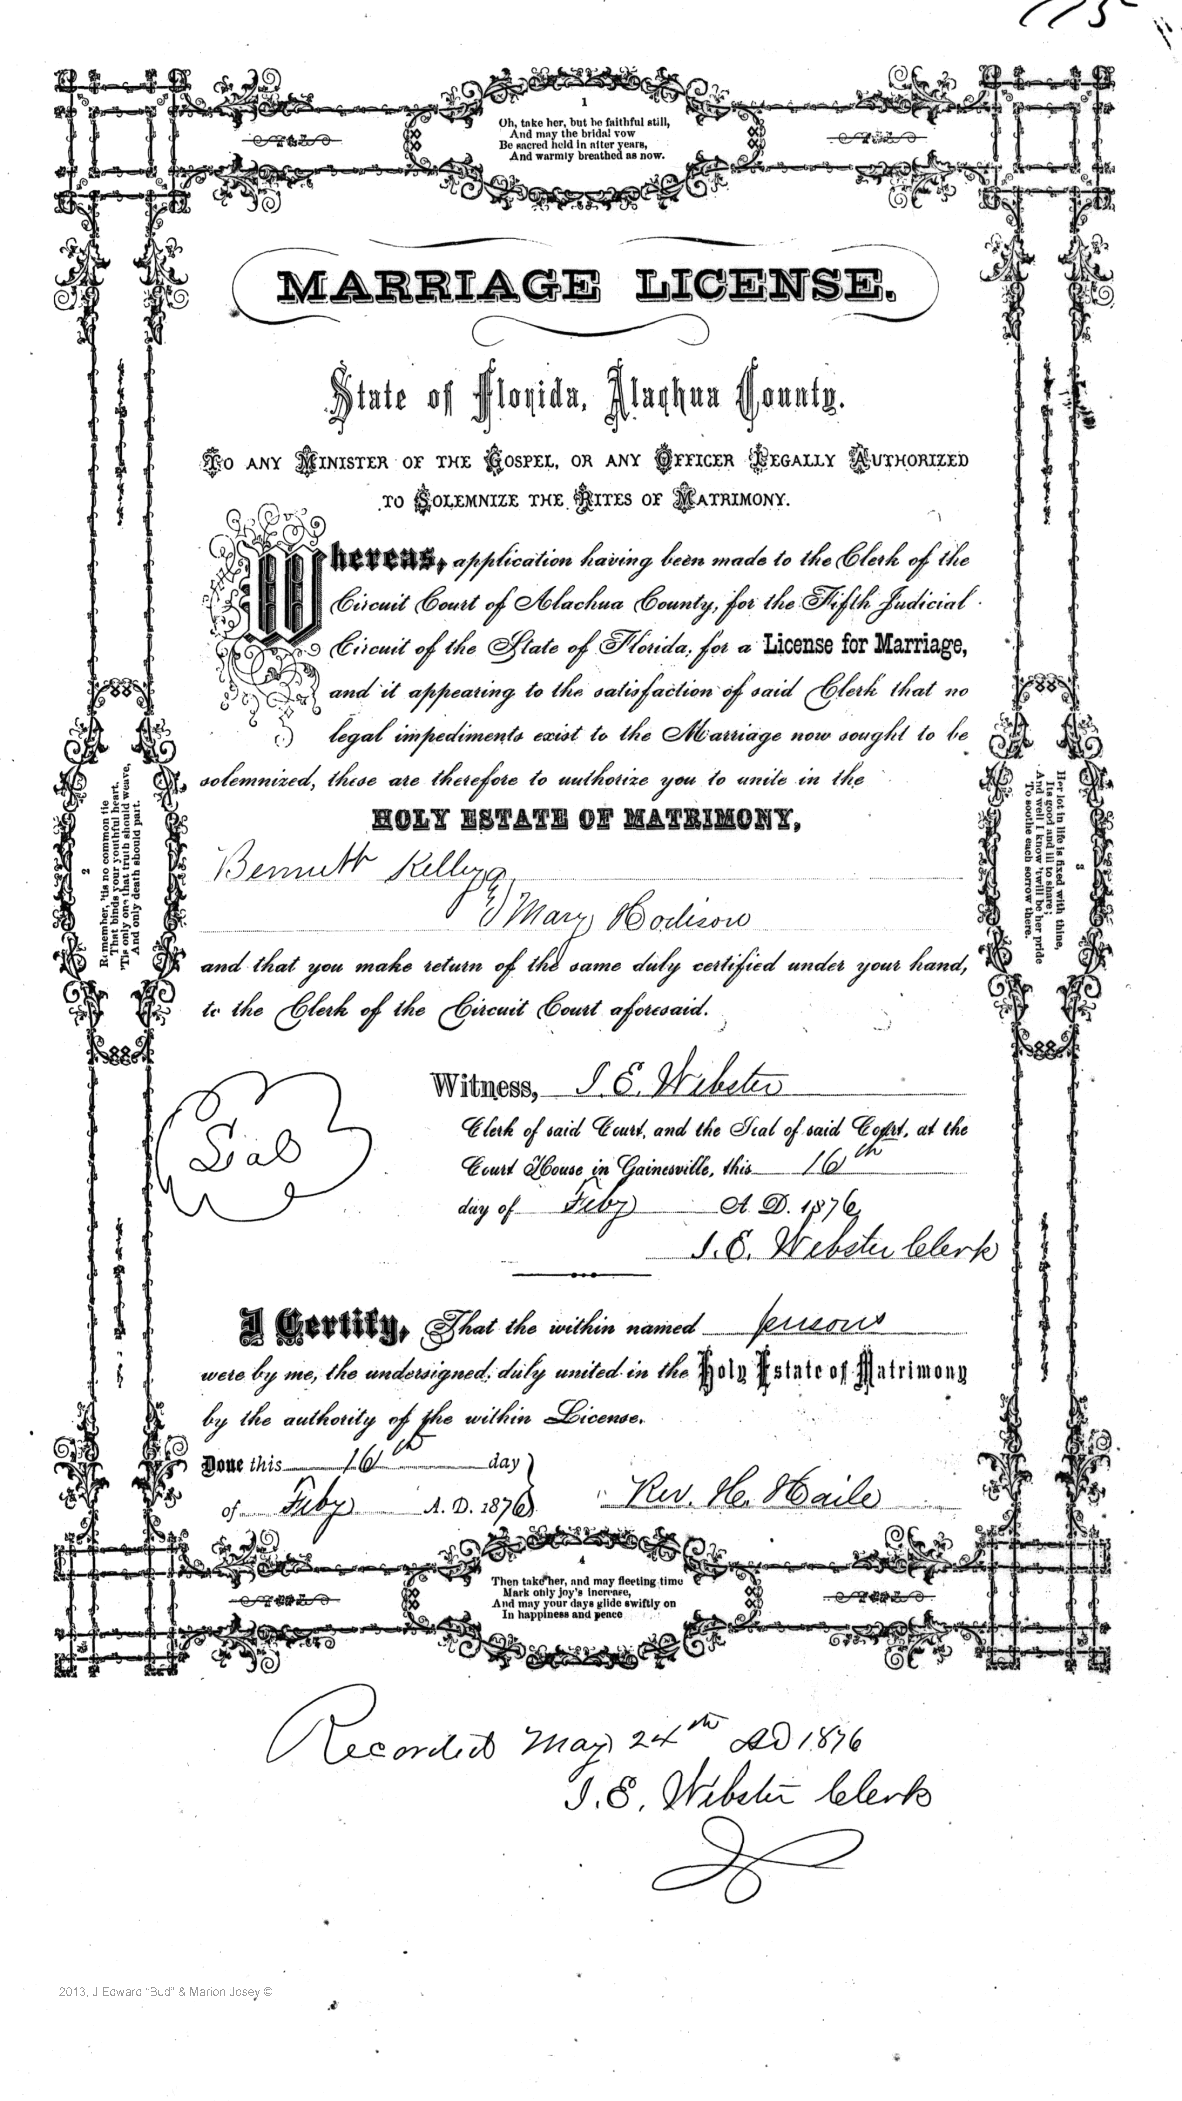 115
1
Oh, take her, but be faithful still,
And may the bridal vow
Be sacred held in after years,
And warmly breathed as now.
MARRIAGE LICENSE.
State of Florida, Alachua County.
To any Minister of the Gospel, or any Officer Legally Authorized
to Solemnize the Rites of Matrimony.
Whereas, application having been made to the Clerk of the
Circuit Court of Alachua County, for the Fifth Judicial
Circuit of the State of Florida, for a License for Marriage,
and it appearing to the satisfaction of said Clerk that no
legal impediments exist to the Marriage now sought to be
solemnized, these are therefore to authorize you to unite in the
HOLY ESTATE OF MATRIMONY,
Bennett Kelly &
Mary Hodison
and that you make return of the same duly certified under your hand,
to the Clerk of the Circuit Court aforesaid.
2
Remember, 'tis no common tie
That binds your youthful heart,
'Tis only one that truth should weave,
And only death should part.
3
Her lot in life is fixed with thine,
Its good and ill to share;
And well I know 'twill be her pride
To soothe each sorrow there.
Seal
Witness, I. E. Webster
Clerk of said Court, and the Seal of said Court, at the
Court House in Gainesville, this 16th
day of Feby A. D. 1876
I. E. Webster Clerk
I Certify, That the within named persons
were by me, the undersigned, duly united in the Holy Estate of Matrimony
by the authority of the within License.
Done this 16th day
of Feby A. D. 1876
Rev. H. Haile
4
Then take her, and may fleeting time
Mark only joy's increase,
And may your days glide swiftly on
In happiness and peace
Recorded May 24th AD 1876
I. E. Webster Clerk
2013, J Edward "Bud" & Marion Josey ©